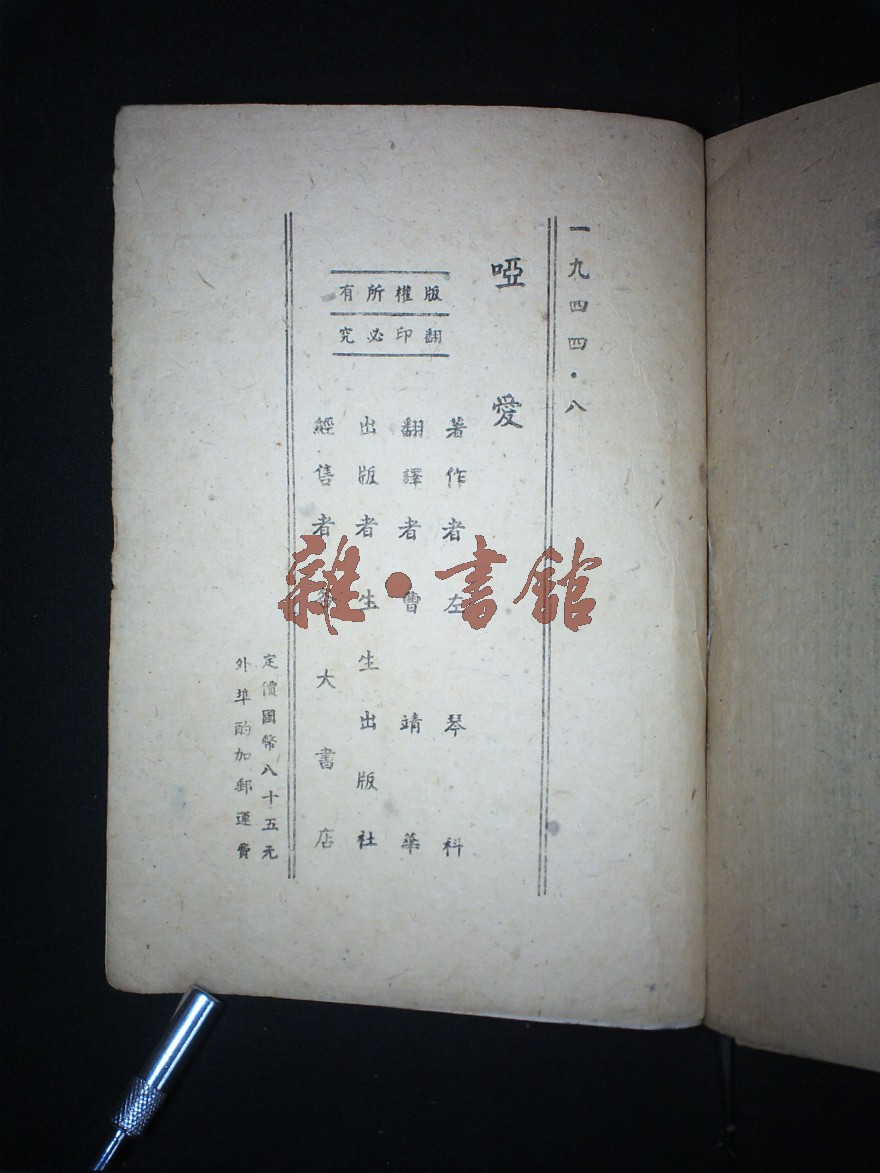 一九四四·八
啞愛
版權所有
翻印必究
著作者 左琴科
翻譯者 曹靖華
出版者 生生出版社
經售者 各大書店
定價國幣八十五元
外埠酌加郵運費
雜·書館